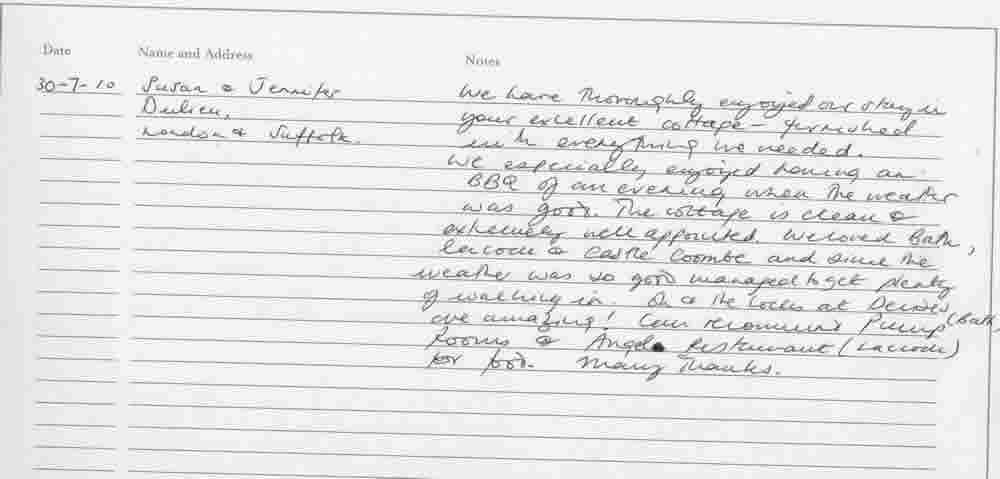 Date Name and Address Notes
30-7-10 Susan & Jennifer We have thoroughly enjoyed our stay in
your excellent cottage - furnished
London & Suffolk. with everything we needed.
We especially enjoyed having an
BBQ of an evening when the weather
was good. The cottage is clean &
extremely well appointed. We loved Bath,
Lacock & Castle Coombe and since the
weather was so good managed to get plenty
of walking in. Oh & the locks at Devizes
are amazing! Can recommend Pump (Bath)
Rooms & Angel Restaurant (Lacock)
for food. Many Thanks.